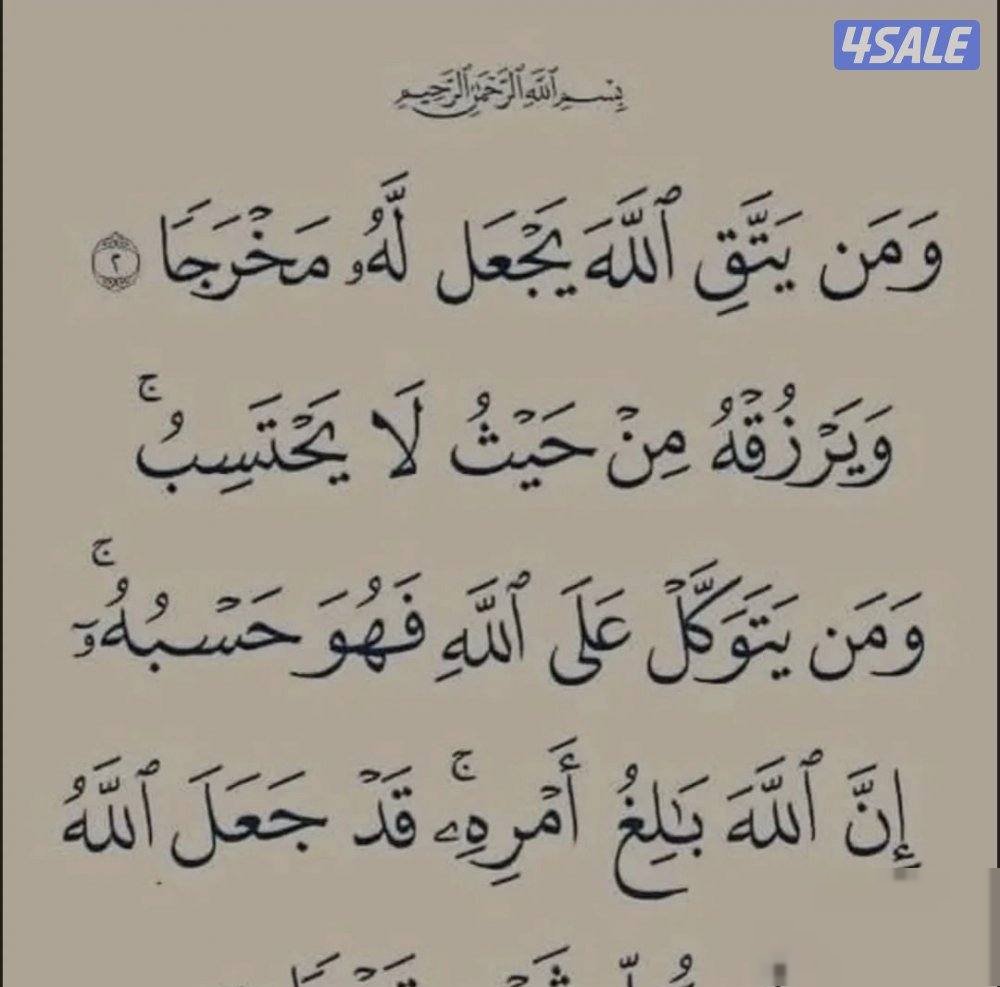 4SALE
بِسْمِ ٱللَّهِ ٱلرَّحْمَٰنِ ٱلرَّحِيمِ
وَمَن يَتَّقِ ٱللَّهَ يَجْعَل لَّهُۥ مَخْرَجًا ٢
وَيَرْزُقْهُ مِنْ حَيْثُ لَا يَحْتَسِبُ ۚ
وَمَن يَتَوَكَّلْ عَلَى ٱللَّهِ فَهُوَ حَسْبُهُۥٓ ۚ
إِنَّ ٱللَّهَ بَٰلِغُ أَمْرِهِۦ ۚ قَدْ جَعَلَ ٱللَّهُ